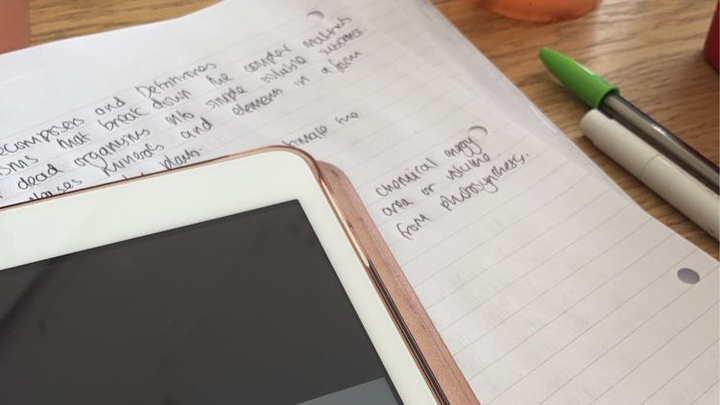 Decomposers and Detritivores
that break down the complex materials
dead organisms into simple soluble substance
minerals and elements in a form
plants.
the
chemical energy
area or volume
from photosynthesis.